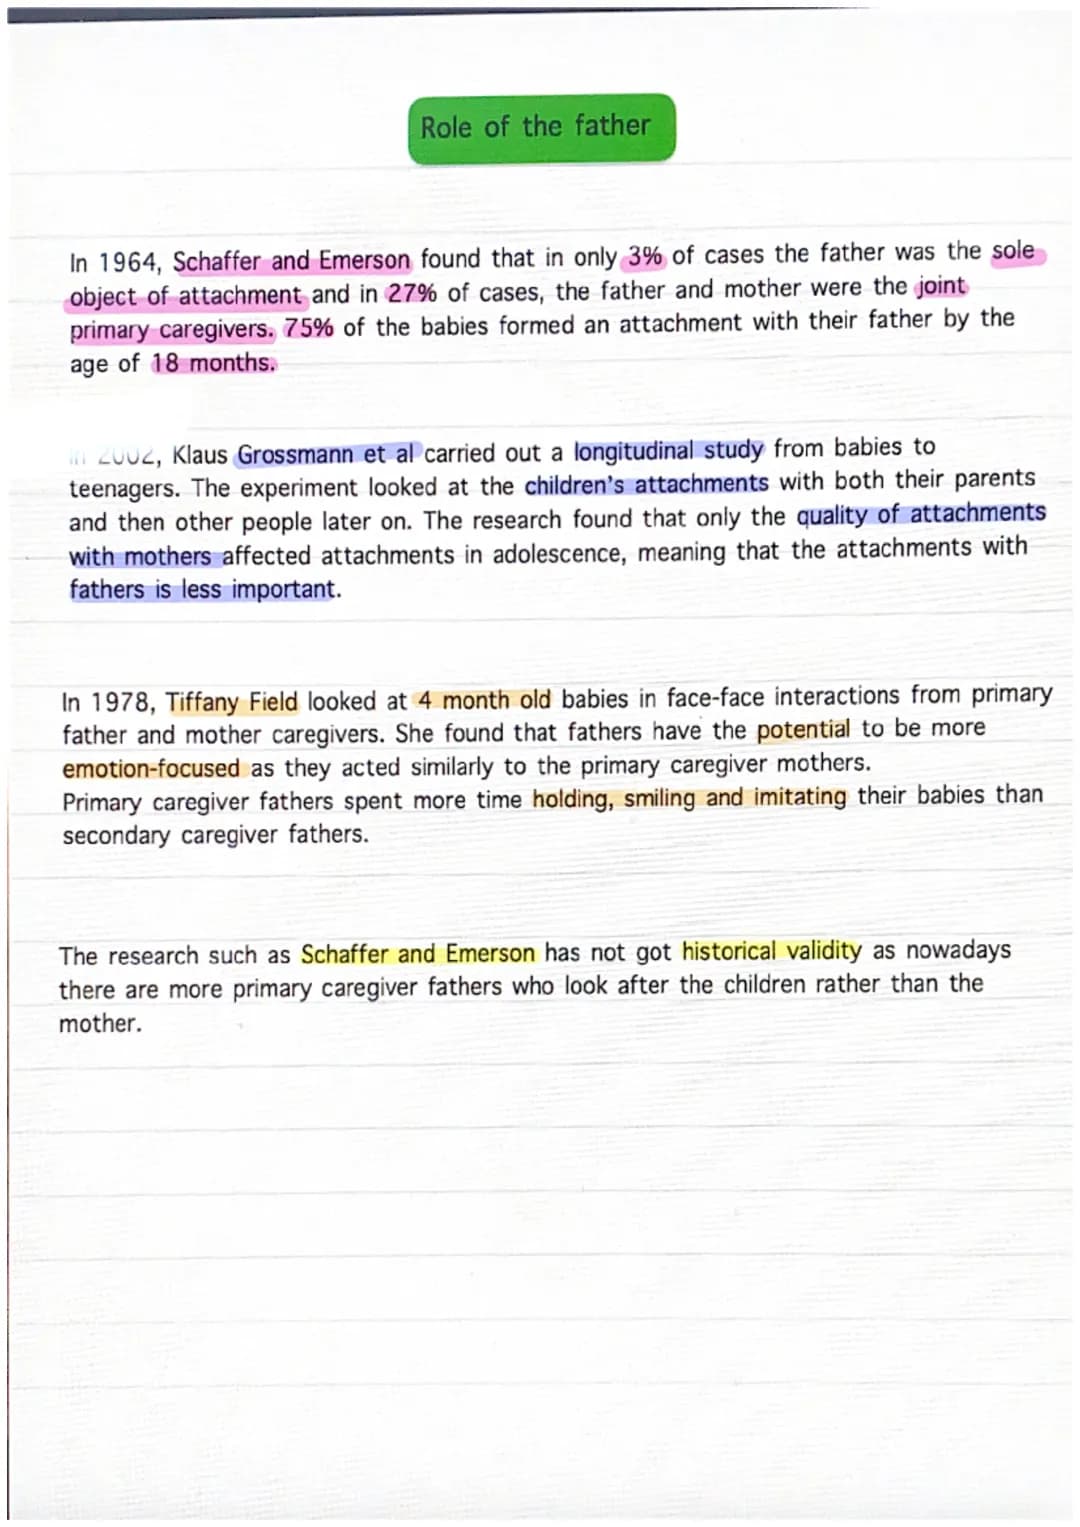 Role of the father
In 1964, Schaffer and Emerson found that in only 3% of cases the father was the sole
object of attachment and in 27% of cases, the father and mother were the joint
primary caregivers. 75% of the babies formed an attachment with their father by the
age of 18 months.
in 2002, Klaus Grossmann et al carried out a longitudinal study from babies to
teenagers. The experiment looked at the children's attachments with both their parents
and then other people later on. The research found that only the quality of attachments
with mothers affected attachments in adolescence, meaning that the attachments with
fathers is less important.
In 1978, Tiffany Field looked at 4 month old babies in face-face interactions from primary
father and mother caregivers. She found that fathers have the potential to be more
emotion-focused as they acted similarly to the primary caregiver mothers.
Primary caregiver fathers spent more time holding, smiling and imitating their babies than
secondary caregiver fathers.
The research such as Schaffer and Emerson has not got historical validity as nowadays
there are more primary caregiver fathers who look after the children rather than the
mother.